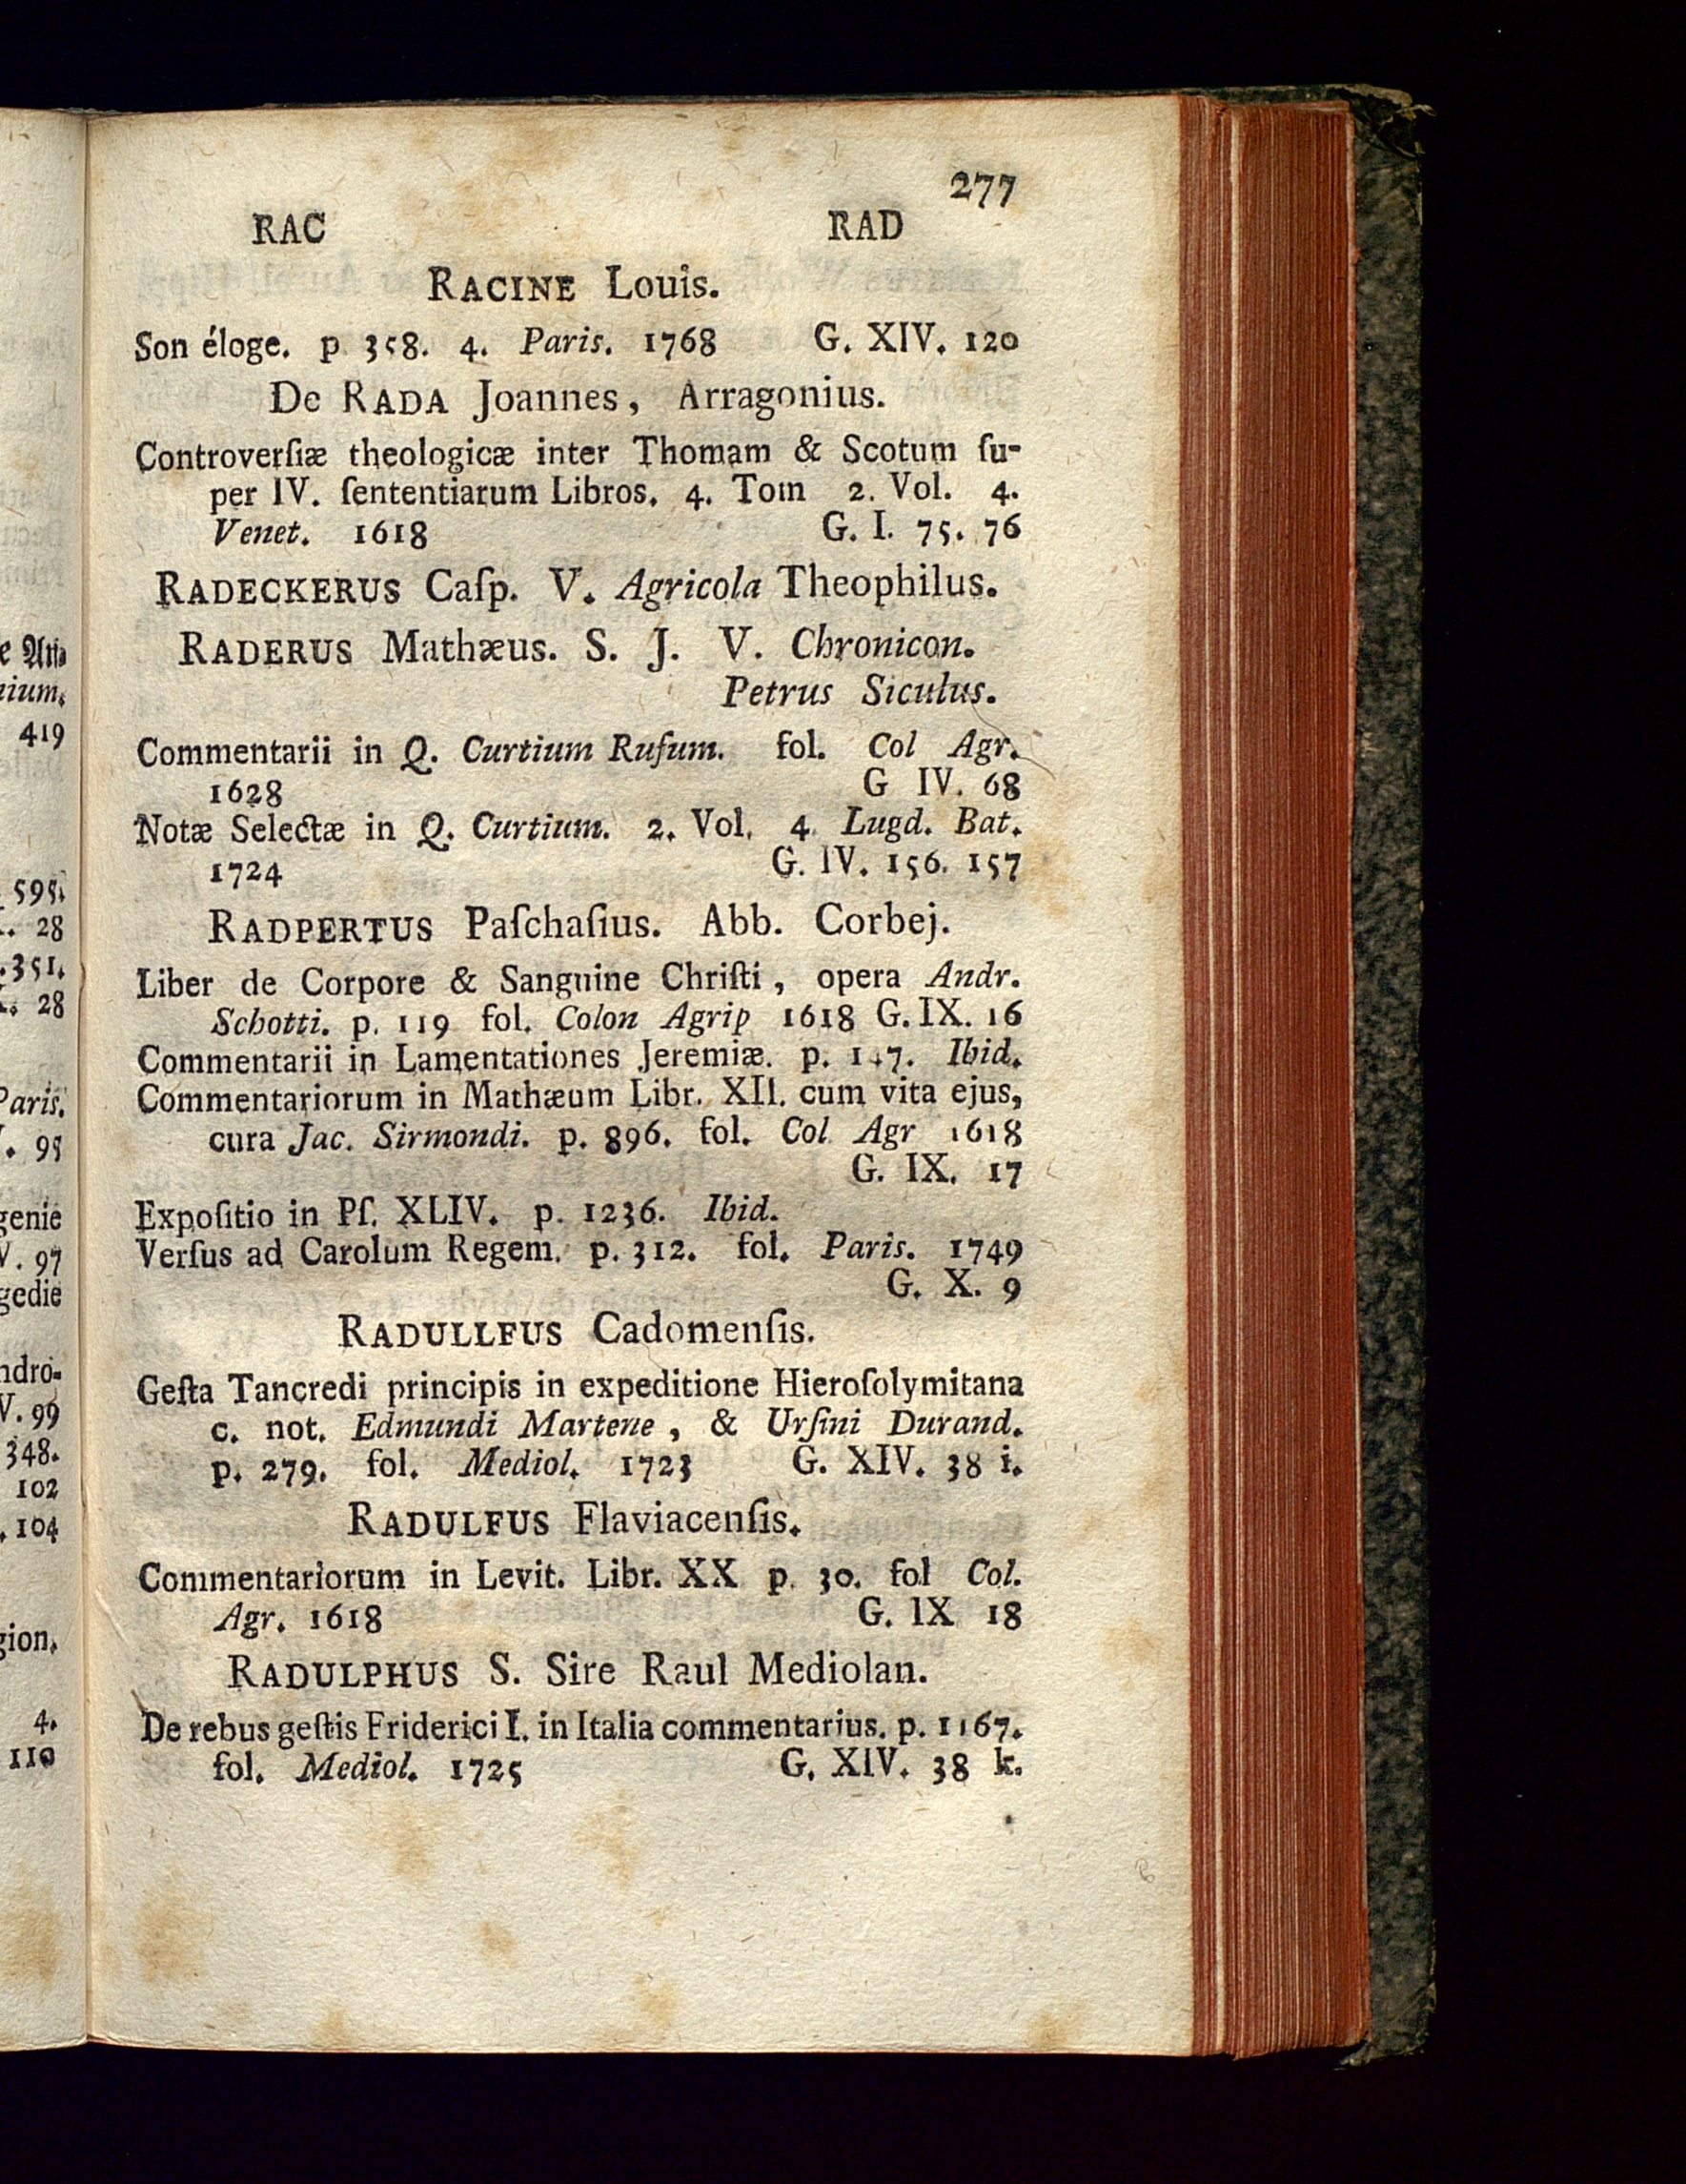 277
RAC RAD
RACINE Louis.
Son éloge. p 358. 4. Paris. 1768 G. XIV. 120
De RADA Joannes, Arragonius.
Controverſiæ theologicæ inter Thomam & Scotum ſu-
per IV. ſententiarum Libros. 4. Tom 2. Vol. 4.
Venet. 1618 G. I. 75. 76
RADECKERUS Caſp. V. Agricola Theophilus.
RADERUS Mathæus. S. J. V. Chronicon.
Petrus Siculus.
Commentarii in Q. Curtium Rufum. fol. Col Agr.
1628 G IV. 68
Notæ Selectæ in Q. Curtium. 2. Vol. 4 Lugd. Bat.
1724 G. IV. 156. 157
RADPERTUS Paſchaſius. Abb. Corbej.
Liber de Corpore & Sanguine Chriſti, opera Andr.
Schotti. p. 119 fol. Colon Agrip 1618 G. IX. 16
Commentarii in Lamentationes Jeremiæ. p. 147. Ibid.
Commentariorum in Mathæum Libr. XII. cum vita ejus,
cura Jac. Sirmondi. p. 896. fol. Col Agr 1618
G. IX. 17
Expoſitio in Pſ. XLIV. p. 1236. Ibid.
Verſus ad Carolum Regem. p. 312. fol. Paris. 1749
G. X. 9
RADULLFUS Cadomenſis.
Geſta Tancredi principis in expeditione Hieroſolymitana
c. not. Edmundi Martene, & Urſini Durand.
p. 279. fol. Mediol. 1723 G. XIV. 38 i.
RADULFUS Flaviacenſis.
Commentariorum in Levit. Libr. XX p. 30. fol Col.
Agr. 1618 G. IX 18
RADULPHUS S. Sire Raul Mediolan.
De rebus geſtis Friderici I. in Italia commentarius. p. 1167.
fol. Mediol. 1725 G. XIV. 38 k.